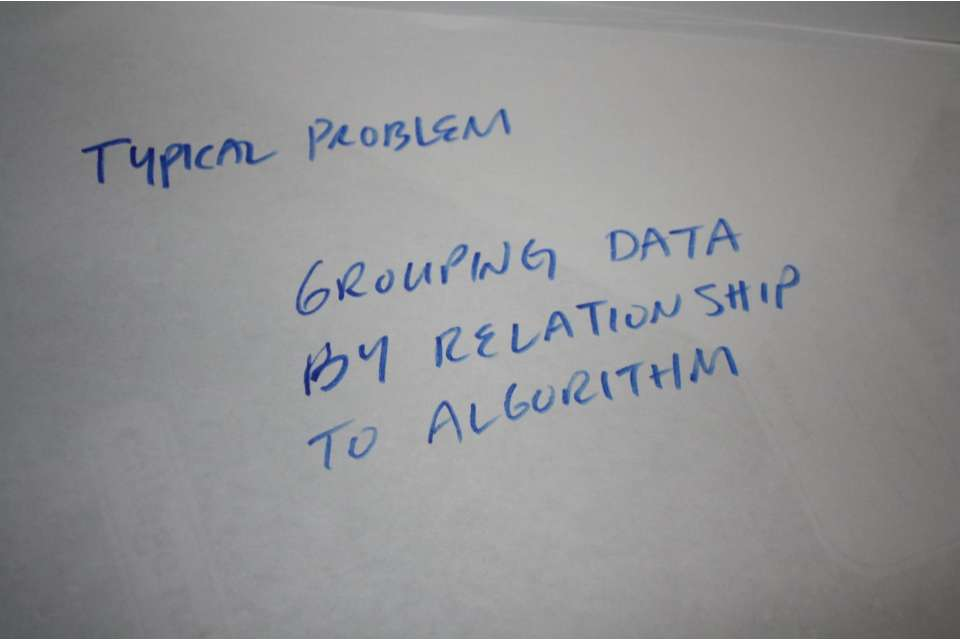 TYPICAL PROBLEM
GROUPING DATA
BY RELATIONSHIP
TO ALGORITHM